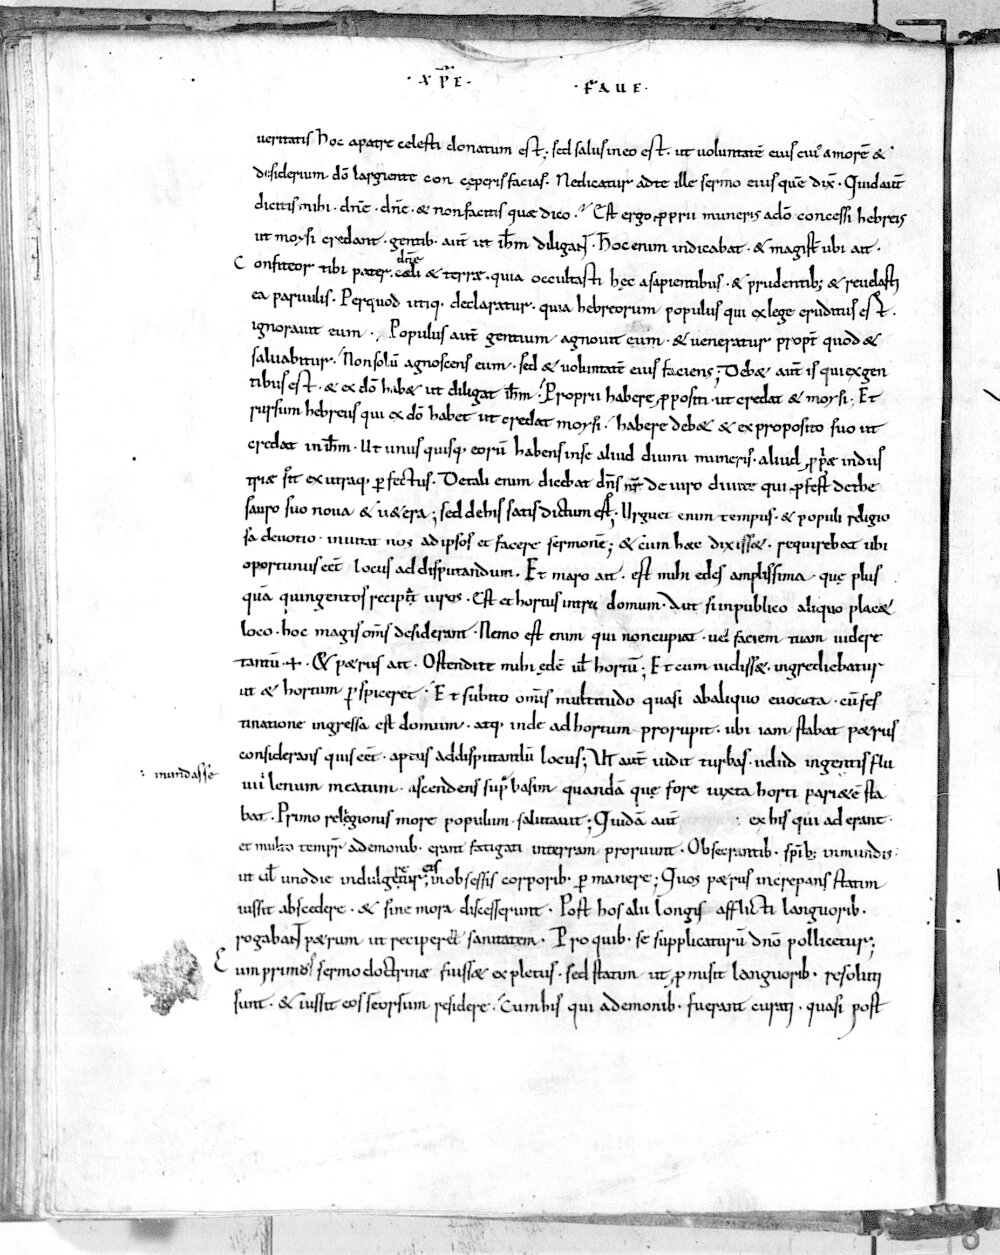 · XP̄E · · FAUE ·
ueritatis hoc apatre celesti donatum est; sed salus ineo est. ut uoluntatē eius cui' amorē &
desiderium dō largiente con cęperis facias. Nedicatur adte ille sermo eius quē dix̄. Quid aūt
dicitis mihi. dn̄e. dn̄e. & non facitis quæ dico. Est ergo ꝓprii muneris adō concessi hebreis
ut moysi credant. gentib. aūt ut ih̄m diligant. hoc enim indicabat. & magist̄ ubi ait.
Confiteor tibi pater dn̄e cæli & terræ. quia occultasti hęc asapientibus. & prudentib; & reuelasti
ea paruulis. Perquod utiq. declaratur. quia hebreorum populus qui exlege eruditus est.
ignorauit eum. Populus aūt gentium agnouit eum. & ueneratur propt̄ quod &
saluabitur. Non solū agnoscens eum. sed & uoluntatē eius faciens; Deb& aūt is qui exgen
tibus est. & ex dō hab& ut diligat ih̄m. Proprii habere ꝓpositi. ut credat & moysi. Et
rursum hebreus qui ex dō habet ut credat moysi. habere deb& & ex proposito suo ut
credat in ih̄m. Ut unus quisq. eorū habens inse aliud diuini muneris. aliud ꝓpræ indus
triæ sit ex utraq. ꝑfectus. Detali enim dicebat dn̄s nr̄ de uiro diuite qui ꝓfert dethe
sauro suo noua & u&era; sed dehis satis dictum est; Urguet enim tempus. & populi religio
sa deuotio inuitat nos ad ipsos et facere sermonē; & cum hæc dixiss&. requirebat ubi
oportunus eēt locus ad disputandum. Et maro ait. est mihi edes amplissima que plus
quā quingentos recipit uiros. Est et hortus intra domum. Aut si inpublico aliquo plac&
loco. hoc magis om̄s desiderant. Nemo est enim qui non cupiat uel faciem tuam uidere
tantū. Et p&rus ait. Ostendite mihi edē ul̄ hortū; Et cum uidiss&. ingrediebatur
ut & hortum ꝑspiceret. Et subito om̄is multitudo quasi abaliquo euocata. cū fes
tinatione ingressa est domum. atq. inde ad hortum prorupit. ubi iam stabat p&rus
considerans quis eēt. aptus addisputandū locus; Ut aūt uidit turbas uelud ingentis flu
uii lenem meatum. ascendens supr̄ basim quandā quę fore iuxta horti pari&ē sta
: mundasse
bat. Primo religionis more populum salutauit; Quidā aūt exhis qui ad erant.
et multo tempr̄ ademonib. erant fatigati interram proruunt. Obsecrantib. sp̄ib; inmundis:
ut ul̄ unodie indulgeret eis inobsessis corporib. ꝑmanere; Quos p&rus increpans statim
iussit abscedere. & sine mora discesserunt. Post hos alii longis afflicti languorib.
rogabant p&rum ut reciperent sanitatem. Pro quib. se supplicaturū dn̄o pollicetur;
Cum primos sermo doctrinæ fuiss& expletus. sed statim ut ꝓmisit languorib. resoluti
sunt. & iussit eos seorsum residere. Cumhis qui ademonib. fuerant curati. quasi post